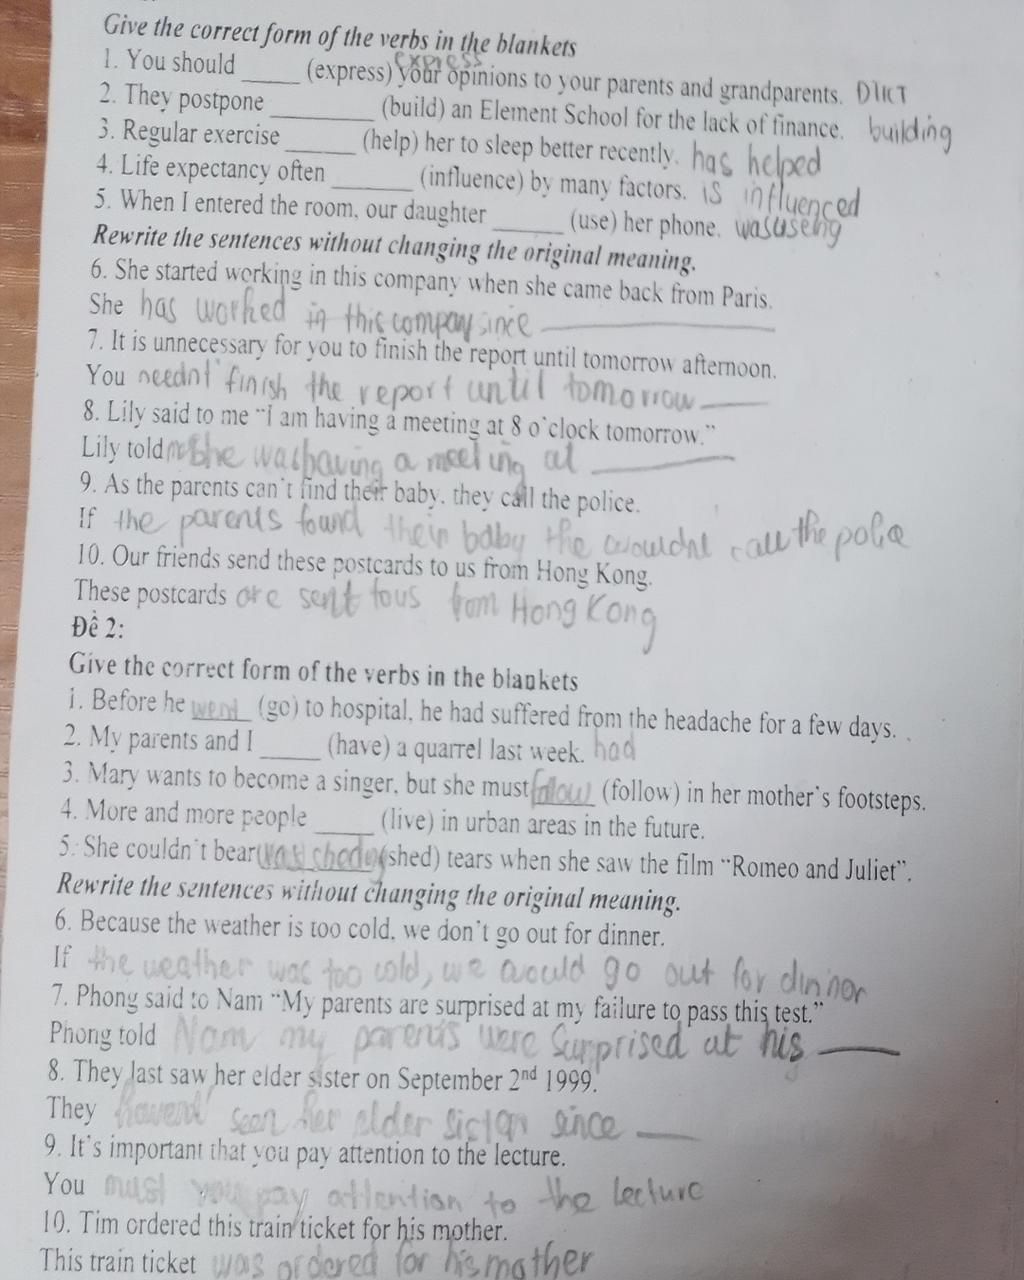 Give the correct form of the verbs in the blankets
express
1. You should _____ (express) your opinions to your parents and grandparents.
2. They postpone _________ (build) an Element School for the lack of finance. building
3. Regular exercise ______ (help) her to sleep better recently. has helped
4. Life expectancy often _______ (influence) by many factors. is influenced
5. When I entered the room, our daughter ______ (use) her phone. was useing
Rewrite the sentences without changing the original meaning.
6. She started working in this company when she came back from Paris.
She has worked in this compay since
7. It is unnecessary for you to finish the report until tomorrow afternoon.
You neednt' finish the report until tomorrow
8. Lily said to me “I am having a meeting at 8 o'clock tomorrow.”
Lily told me she was having a meeting at
9. As the parents can't find their baby, they call the police.
If the parents found their baby the wouldnt call the police
10. Our friends send these postcards to us from Hong Kong.
These postcards are sent to us from Hong Kong
Đề 2:
Give the correct form of the verbs in the blankets
1. Before he went (go) to hospital, he had suffered from the headache for a few days.
2. My parents and I _____ (have) a quarrel last week. had
3. Mary wants to become a singer, but she must follow (follow) in her mother's footsteps.
4. More and more people _____ (live) in urban areas in the future.
5. She couldn't bear (shed) tears when she saw the film “Romeo and Juliet”.
Rewrite the sentences without changing the original meaning.
6. Because the weather is too cold, we don't go out for dinner.
If the weather was too cold, we would go out for dinnor
7. Phong said to Nam “My parents are surprised at my failure to pass this test.”
Phong told Nam my parents were surprised at his
8. They last saw her elder sister on September 2nd 1999.
They seen her elder since
9. It's important that you pay attention to the lecture.
You must you pay attention to the lecture
10. Tim ordered this train ticket for his mother.
This train ticket was ordered for his mother